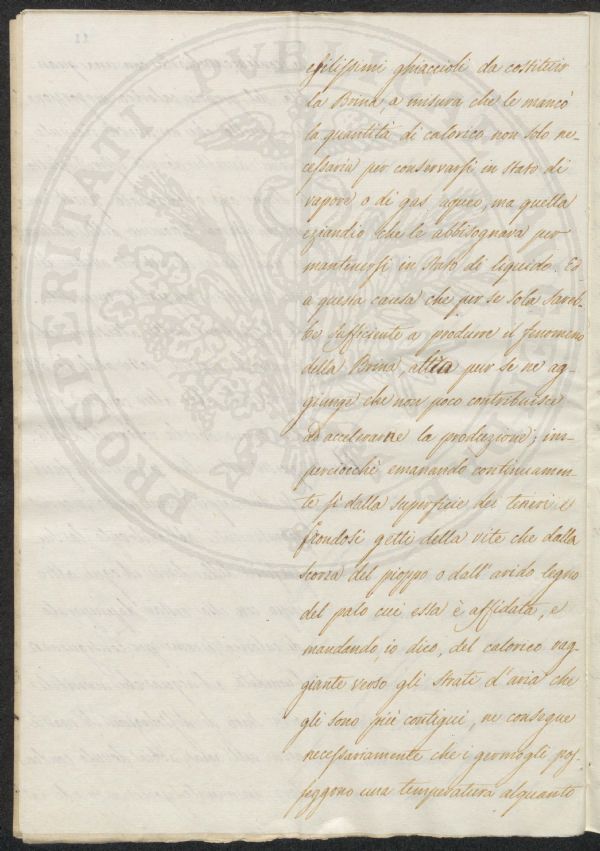 11
PROSPERITATI PVBLICAE
esilissimi ghiaccioli da costituir
la Brina a misura che le mancò
la quantità di calorico non solo ne-
cessaria per conservarsi in stato di
vapore o di gas aqueo, ma quella
eziandio che le abbisognava per
mantenersi in stato di liquido. Ed
a questa causa che per se sola sareb-
be sufficiente a produrre il fenomeno
della Brina, altra pur se ne ag-
giunge che non poco contribuisce
ad accelerarne la produzione; im-
perciocchè emanando continuamen-
te sì dalla superficie dei teneri e
frondosi getti della vite che dalla
scorza del pioppo o dall'arido legno
del palo cui essa è affidata, e
mandando, io dico, del calorico rag-
giante verso gli strati d'aria che
gli sono più contigui, ne consegue
necessariamente che i germogli pos-
seggono una temperatura alquanto